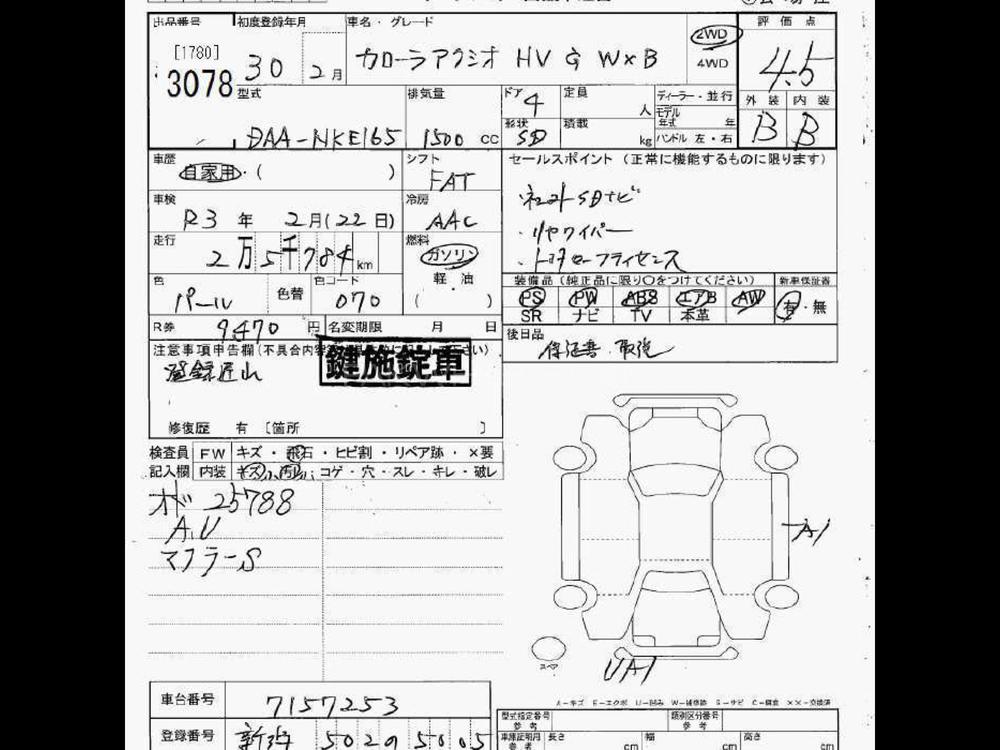 出品番号 初度登録年月 車名・グレード 2WD 評価点
[1780] 3078 30 2月 カローラアクシオ HV G W×B 4WD 4.5
型式 排気量 ドア 4 定員 人 ディーラー・並行 外装 内装
モデル年式 年
DAA-NKE165 1500 cc 形状 SD 積載 kg ハンドル 左・右 B B
車歴 シフト セールスポイント（正常に機能するものに限ります）
自家用・（ ） FAT
車検 冷房 ・SDナビ
R3 年 2月(22日) AAC ・リヤワイパー
走行 燃料 ・トヨタセーフティセンス
2万5千784km ガソリン
色 色替 色コード 軽・油 装備品（純正品に限り○をつけてください） 新車保証書
パール 070 （ ） PS PW ABS エアB AW 有・無
SR ナビ TV 本革
R券 9470 円 名変期限 月 日 後日品
注意事項申告欄 保証書 取説
鍵施錠車
修復歴 有 〔箇所 〕
検査員 FW キズ・飛石・ヒビ割・リペア跡・×要
記入欄 内装 キズ小 汚れ小 コゲ・穴・スレ・キレ・破レ
オド 25788
A.U
マフラーS
A1
スペア
UA1
車台番号 7157253
A－キズ E－エクボ U－凹み W－補修跡 S－サビ C－腐食 ××－交換済
型式指定番号 参考 類別区分番号 参考
登録番号 新潟 502 の 5005 車庫証明用 参考 長さ cm 幅 cm 高さ cm